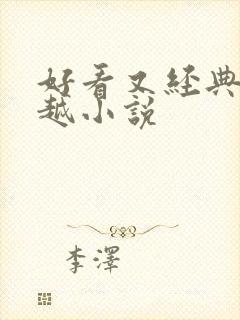 好看又经典
越小说
李澤